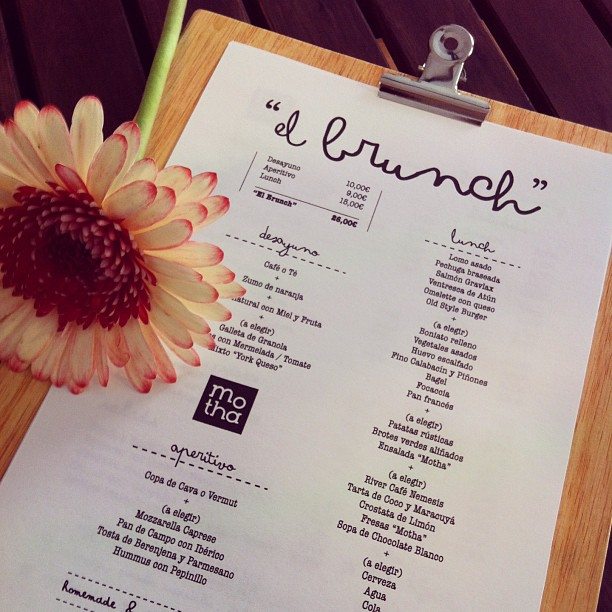 “el brunch”
Desayuno 10,00€
Aperitivo 9,00€
Lunch 18,00€
"El Brunch" 26,00€
desayuno
Café o Té
+
Zumo de naranja
+
natural con Miel y Fruta
+
(a elegir)
Galleta de Granola
con Mermelada / Tomate
Mixto "York Queso"
mo
tha
aperitivo
Copa de Cava o Vermut
+
(a elegir)
Mozzarella Caprese
Pan de Campo con Ibérico
Tosta de Berenjena y Parmesano
Hummus con Pepinillo
homemade
lunch
Lomo asado
Pechuga braseada
Salmón Gravlax
Ventresca de Atún
Omelette con queso
Old Style Burger
+
(a elegir)
Boniato relleno
Vegetales asados
Huevo escalfado
Fino Calabacín y Piñones
Bagel
Focaccia
Pan francés
+
(a elegir)
Patatas rústicas
Brotes verdes aliñados
Ensalada "Motha"
+
(a elegir)
River Café Nemesis
Tarta de Coco y Maracuyá
Crostata de Limón
Fresas "Motha"
Sopa de Chocolate Blanco
+
(a elegir)
Cerveza
Agua
Cola